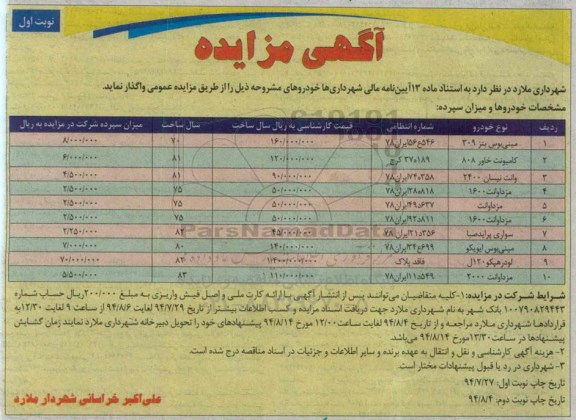 نوبت اول
آگهی مزایده
شهرداری ملارد در نظر دارد به استناد ماده ۱۳ آیین‌نامه مالی شهرداری‌ها خودروهای مشروحه ذیل را از طریق مزایده عمومی واگذار نماید.
مشخصات خودروها و میزان سپرده:
ردیف نوع خودرو شماره انتظامی قیمت کارشناسی به ریال سال ساخت سال ساخت میزان سپرده شرکت در مزایده به ریال
۱ مینی‌بوس بنز ۳۰۹ ۵۴۶ع۵۶ایران۷۸ ۱۶۰/۰۰۰/۰۰۰ ۷۰ ۸/۰۰۰/۰۰۰
۲ کامیونت خاور ۸۰۸ ۱۸۹ ۳۷ کرج ۱۲۰/۰۰۰/۰۰۰ ۸۱ ۶/۰۰۰/۰۰۰
۳ وانت نیسان ۲۴۰۰ ۳۵۸ ۷۴ایران۷۸ ۹۰/۰۰۰/۰۰۰ ۸۱ ۴/۵۰۰/۰۰۰
۴ مزداوانت۱۶۰۰ ۸۱۸ ۲۸ایران۷۸ ۵۰/۰۰۰/۰۰۰ ۷۵ ۲/۵۰۰/۰۰۰
۵ مزداوانت ۶۳۷ ۴۹ایران۷۸ ۵۰/۰۰۰/۰۰۰ ۷۵ ۲/۵۰۰/۰۰۰
۶ مزداوانت۱۶۰۰ ۸۱۱ ۹۲ایران۷۸ ۵۰/۰۰۰/۰۰۰ ۷۵ ۲/۵۰۰/۰۰۰
۷ سواری پرایدصبا ۳۵۶ ۲۱ایران۷۸ ۴۵/۰۰۰/۰۰۰ ۸۴ ۲/۲۵۰/۰۰۰
۸ مینی‌بوس ایویکو ۶۹۹ع۳۴ایران۷۸ ۱۴۰/۰۰۰/۰۰۰ ۸۰ ۷/۰۰۰/۰۰۰
۹ لودرهپکو۱۲۰ال فاقد پلاک ۱/۴۰۰/۰۰۰/۰۰۰ ۸۲ ۷۰/۰۰۰/۰۰۰
۱۰ مزداوانت ۲۰۰۰ ۵۴۹ ۱۱ایران۷۸ ۱۱۰/۰۰۰/۰۰۰ ۸۳ ۵/۵۰۰/۰۰۰
ParsNamadData
شرایط شرکت در مزایده: ۱-کلیه متقاضیان می‌توانند پس از انتشار آگهی با ارائه کارت ملی و اصل فیش واریزی به مبلغ ۲۰۰/۰۰۰ریال حساب شماره
۱۰۰۷۹۰۸۲۹۴۴۳ بانک شهر به نام شهرداری ملارد جهت دریافت اسناد مزایده وکسب اطلاعات بیشتر از تاریخ ۹۴/۷/۲۹ لغایت ۹۴/۸/۶ از ساعت ۹ لغایت ۱۲/۳۰به
قراردادها شهرداری ملارد مراجعه و از تاریخ ۹۴/۸/۴ لغایت ساعت۱۲/۰۰ مورخ ۹۴/۸/۱۴ پیشنهادهای خود را تحویل دبیرخانه شهرداری ملارد نمایند زمان گشایش
پیشنهادها در ساعت۱۳/۳۰مورخ ۹۴/۸/۱۴ می‌باشد.
۲- هزینه آگهی کارشناسی و نقل و انتقال به عهده برنده و سایر اطلاعات و جزئیات در اسناد مناقصه درج شده است.
۳- شهرداری در رد یا قبول پیشنهادات مختار است.
تاریخ چاپ نوبت اول: ۹۴/۷/۲۷
تاریخ چاپ نوبت دوم: ۹۴/۸/۴
علی‌اکبر خراسانی شهردار ملارد